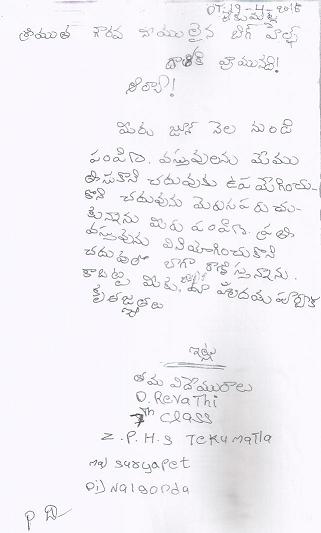 DT:19-4-2015
టేకుమట్ల
గౌరవ బిగ్ హెల్ప్
గారికి వ్రాయునది!
మీరు జూన్ నెల నుండి
పంపిన. వస్తువులను మేము
తీసుకొని చదువుకు ఉపయోగించు
కొని చదువును మెరుగుపరుచు
కున్నాను మీరు పంపిన. ప్రతి
వస్తువును వినియోగించుకొని
చదువులో బాగా రాణిస్తున్నాను.
కాబట్టి మీకు, మా హృదయ పూర్వక
కృతజ్ఞతలు
ఇట్లు
తమ విధేయురాలు
D. Revathi
7th class
Z.P.H.S Tekumatla
ma) suryapet
Di) Nalgonda